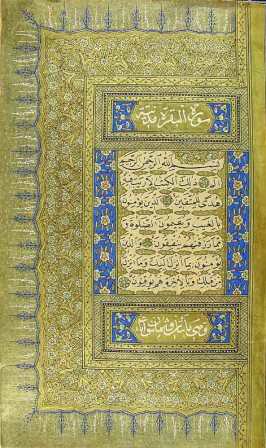 سورة البقرة مدنية
بسم الله الرحمن الرحيم
الم ذلك الكتب لا ريب فيه
هدى للمتقين الذين يؤمنون
بالغيب ويقيمون الصلوة و
مما رزقنهم ينفقون والذين
يؤمنون بما انزل اليك وما انزل
من قبلك وبالاخرة هم يوقنون